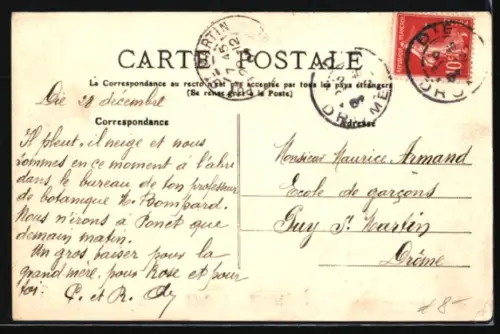 CARTE POSTALE
La Correspondance au recto n'est pas acceptée par tous les pays étrangers
(Se renseigner à la Poste)
Die 28 décembre
Correspondance
Il pleut, il neige et nous
sommes en ce moment à l'abri
dans le bureau de ton professeur
de botanique Mr
Nous n'irons à Ponet que
demain matin.
Un gros baiser pour la
grand'mère, pour Rose et pour
toi. C. et R.
Adresse
Monsieur Maurice Armand
Ecole de garçons
Puy St Martin
Drôme
DIE
DROME
MARTIN
10